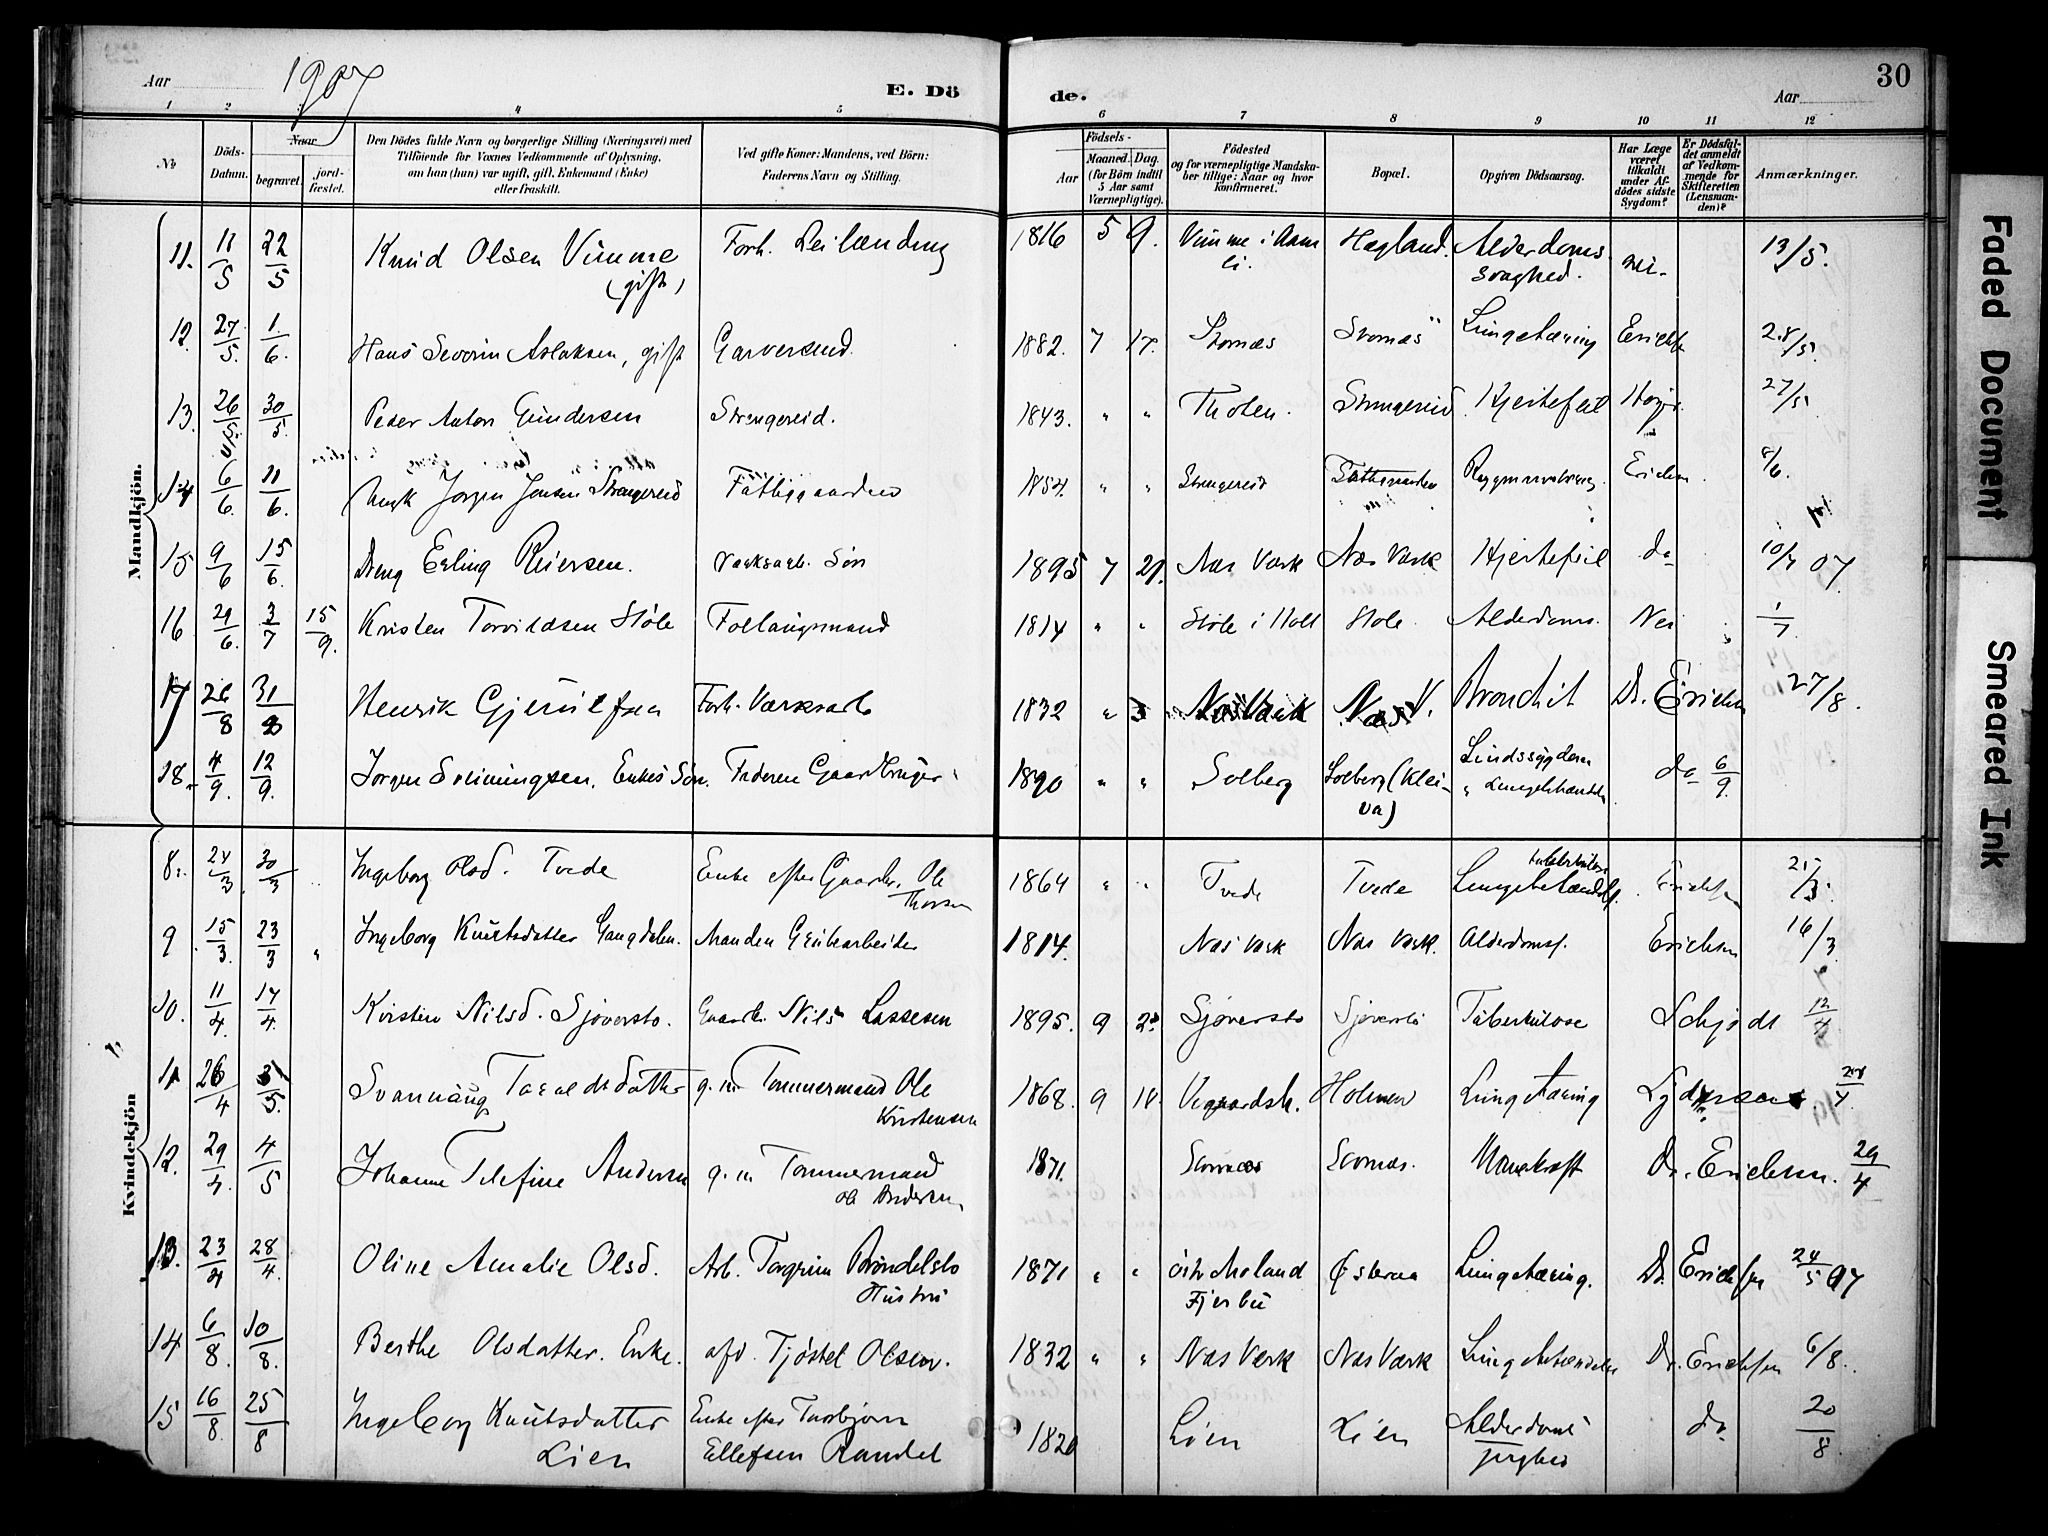 Aar 1907 E. Dö de. Aar 30
1 2 3 4 5 6 7 8 9 10 11 12
No
Döds-Datum.
Naar
begravet.
jord-fæstet.
Den Dödes fulde Navn og borgerlige Stilling (Næringsvei) med
Tilföiende for Voxnes Vedkommende af Oplysning,
om han (hun) var ugift, gift, Enkemand (Enke)
eller fraskilt.
Ved gifte Koner: Mandens, ved Börn:
Faderens Navn og Stilling.
Födsels-
Aar
Maaned. Dag.
(for Börn indtil
5 Aar samt
Værnepligtige).
Födested
og for værnepligtige Mandska-
ber tillige: Naar og hvor
konfirmeret.
Bopæl.
Opgiven Dödsaarsag.
Har Læge
været
tilkaldt
under Af-
dödes sidste
Sygdom?
Er Dödsfal-
det anmeldt
af Vedkom-
mende for
Skifteretten
(Lensman-
den)?
Anmærkninger.
Mandkjön.
11. 11/5 22/5 Knud Olsen Vimme Forh. Leilænding 1816 5 9. Vimme i Aam Hægland. Alderdoms nei. 13/5.
(gift) li. svaghed.
12. 27/5. 1./6. Hans Severin Aslaksen, gift Garversvend. 1882. 7 17. Stornæs Lungetæring 28/5.
13. 26/5. 30/5. Peder Anton Gundersen Strengereid. 1843. " " Tholen. Strengereid. Hjertefeil 27/5
14 6/6. 11/6. Ungk Jørgen Jensen Strengereid Fattiggaarden 1854. " " Strengereid Erichsen 8/6.
15 9/6 15/6. Dreng Erling Reiersen. Værksarb. Søn 1895 7 29. Næs Værk Næs Værk Hjertefeil do 10/7 07.
16 29/6. 3/7 15/9. Kristen Torvildsen Støle Follaugsmand 1814 " " Støle i Holt Støle. Alderdoms. Nei 1/7.
17 26/8 31/8 Henrik Forh. Værksarb 1832 " 3 Næs Værk Næs V. Bronchit Dr. Erichsen 27/8.
18. 4/9. 12/9. Jørgen Enkes Søn. Faderen Gaardbruger. 1890 " " Solberg Solberg (Klei- do 6/9.
va)
Kvindekjön
8. 24/3. 30/3 Ingeborg Olsd. Tvede Enke efter Gaardbr. Ole 1864 " " Tvede Tvede Lungebetændelse. Erichsen 25/3.
Thorsen
9 15/3. 23/3 " Ingeborg Knutsdatter Langdalen. Manden Grubearbeider 1814. Næs Værk Næs Værk. Alderdomssv. Erichsen 16/3
10. 11/4. 17/4. Kirstine Nilsd. Sjøversto. Gaardb. Nils Lassesen 1895. 9 Sjøversto Sjøversto Tuberkulose Schjødt 12/4
11 26/4 5/5. Svannaug Taraldsdatter g. m. Tømmermand Ole 1868. 9 10. Vegaardsh. Holmen Lungetæring
Kristensen
12. 29/4. 4/5 Johanne Telefine Andersen g. m Tømmermand 1871. Dr. Erichsen. 29/4
Ole Andersen
13. 23/4 28/4. Oline Amalie Olsd. Arb. Torgrim Brøndelsto 1871 " " Østre Moland Østeraa Lungetæring. Dr. Erichsen 24/5 07
Hustru
14 6/8. 10/8. Berthe Olsdatter. Enke. afd. Tjøstel Olsen. 1832 " " Næs Verk Næs Værk Lungebetændelse Dr. Erichsen 6/8.
15 16/8. 25/8 Ingeborg Knutsdatter Enke efter Torbjørn 1820 Lien Lien Alderdoms do 20/8
Lien Ellefsen Randel
Faded Document
Smeared Ink